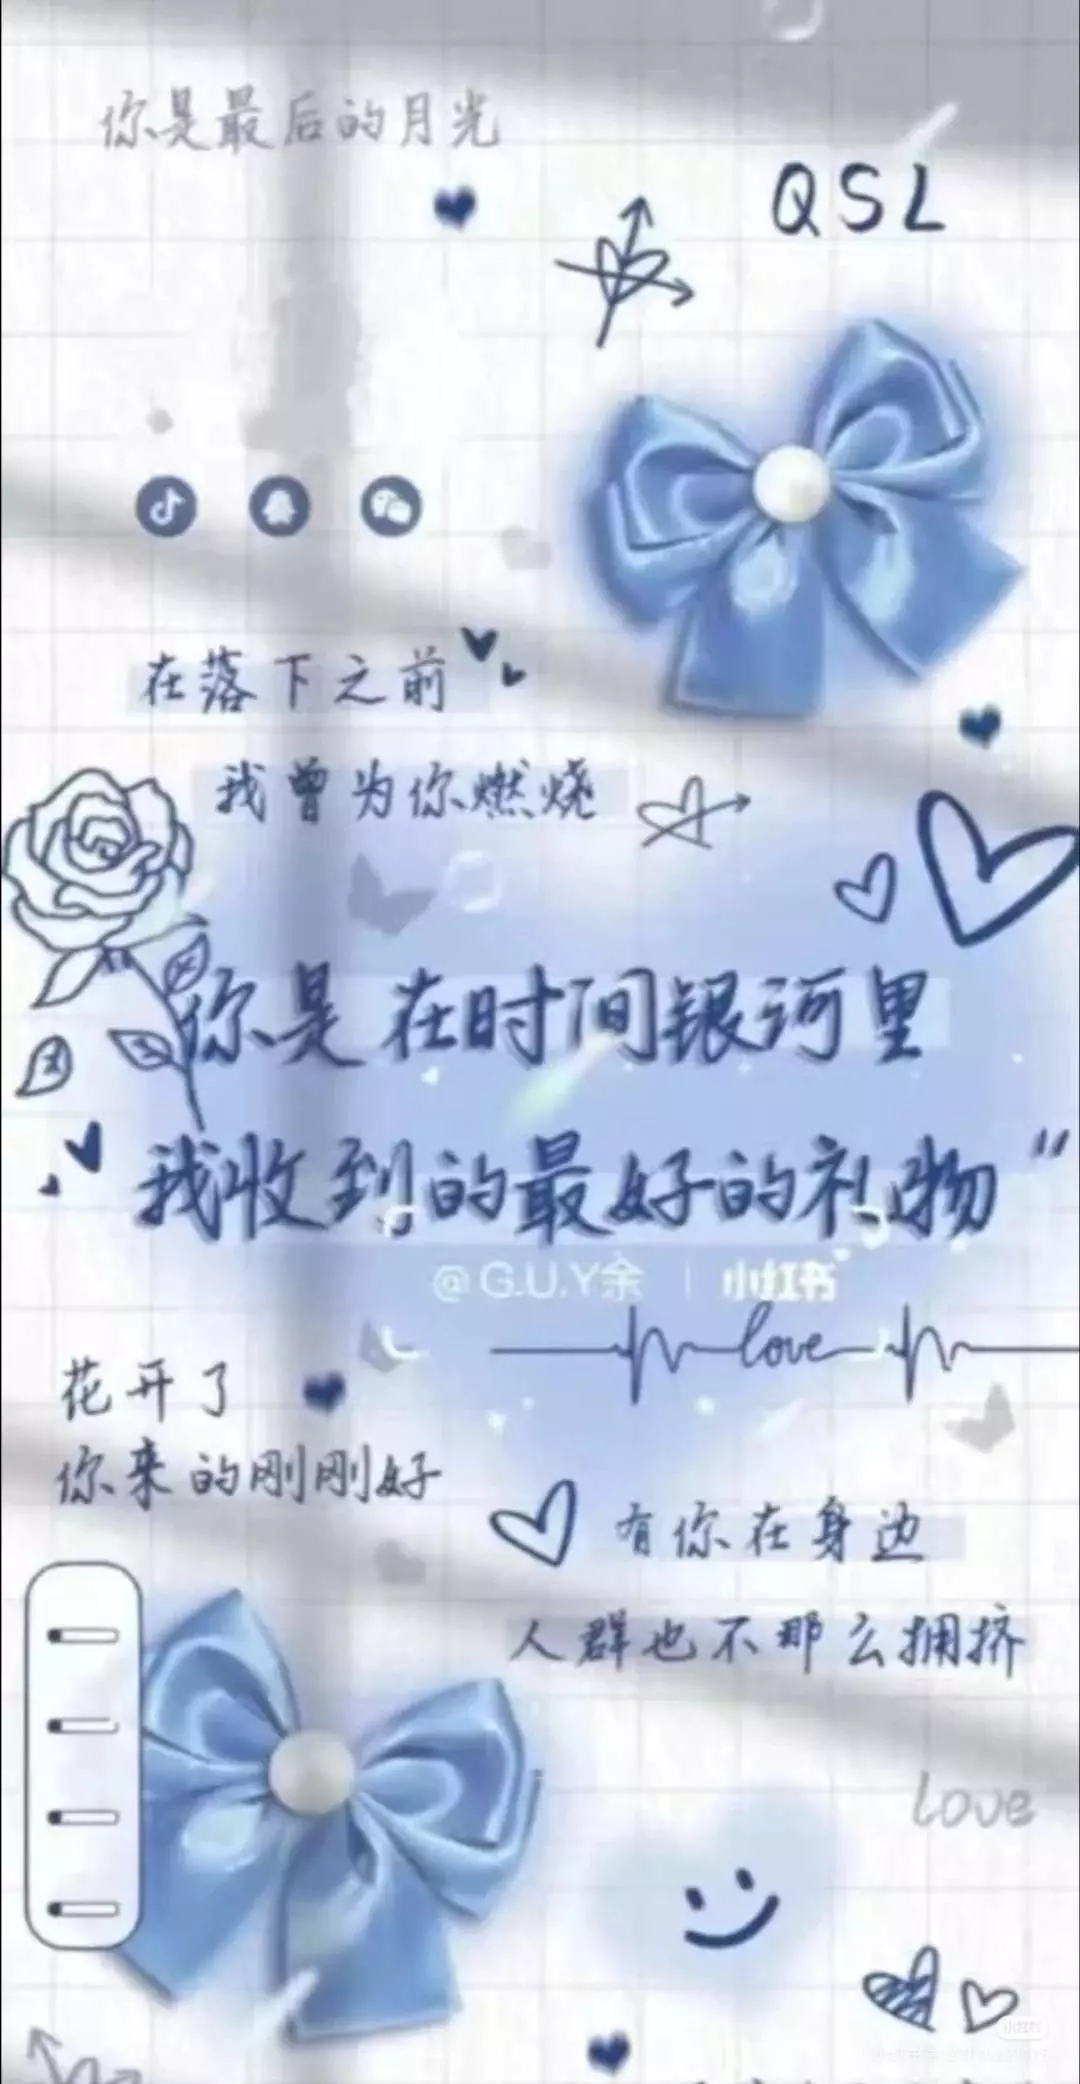 你是最后的月光
QSL
在落下之前
我曾为你燃烧
你是在时间银河里
我收到的最好的礼物"
@G.U.Y余 | 小红书
love
花开了
你来的刚刚好
有你在身边
人群也不那么拥挤
Love
小红书